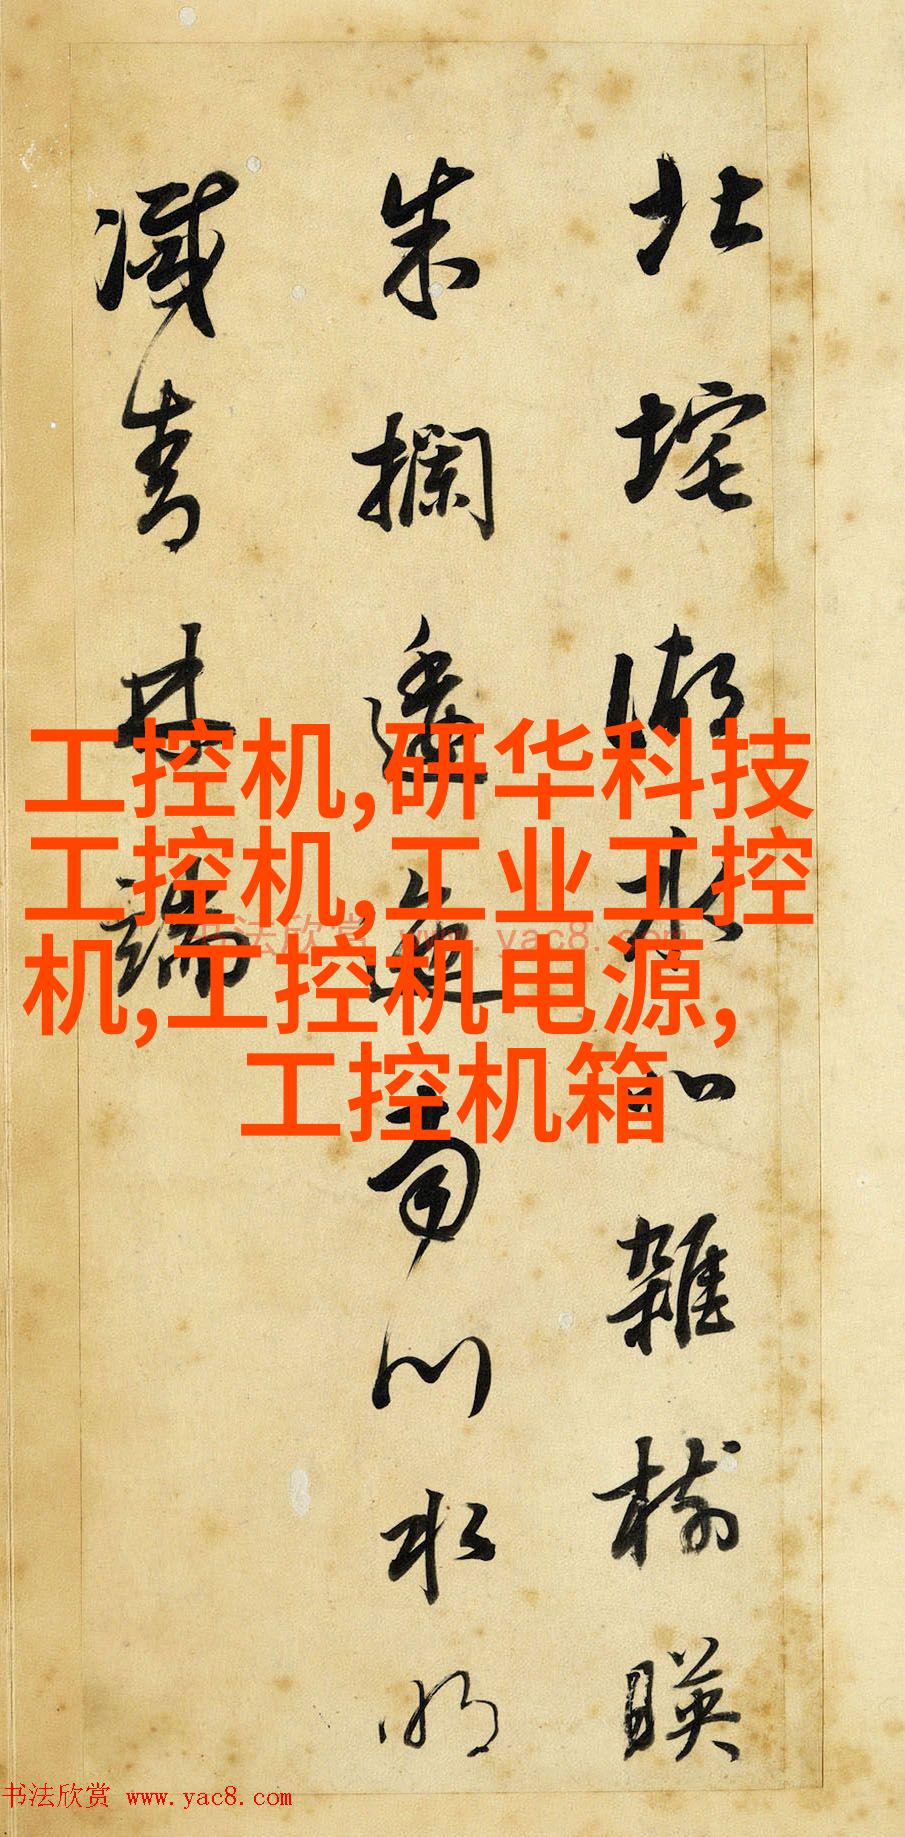 北垞湖水北雜樹暎
朱欄逶迤南川水明
滅青林端
工控机,研华科技
工控机,工业工控
机,工控机电源,
工控机箱
书法欣赏 www.yac8.com
书法欣赏 www.yac8.com